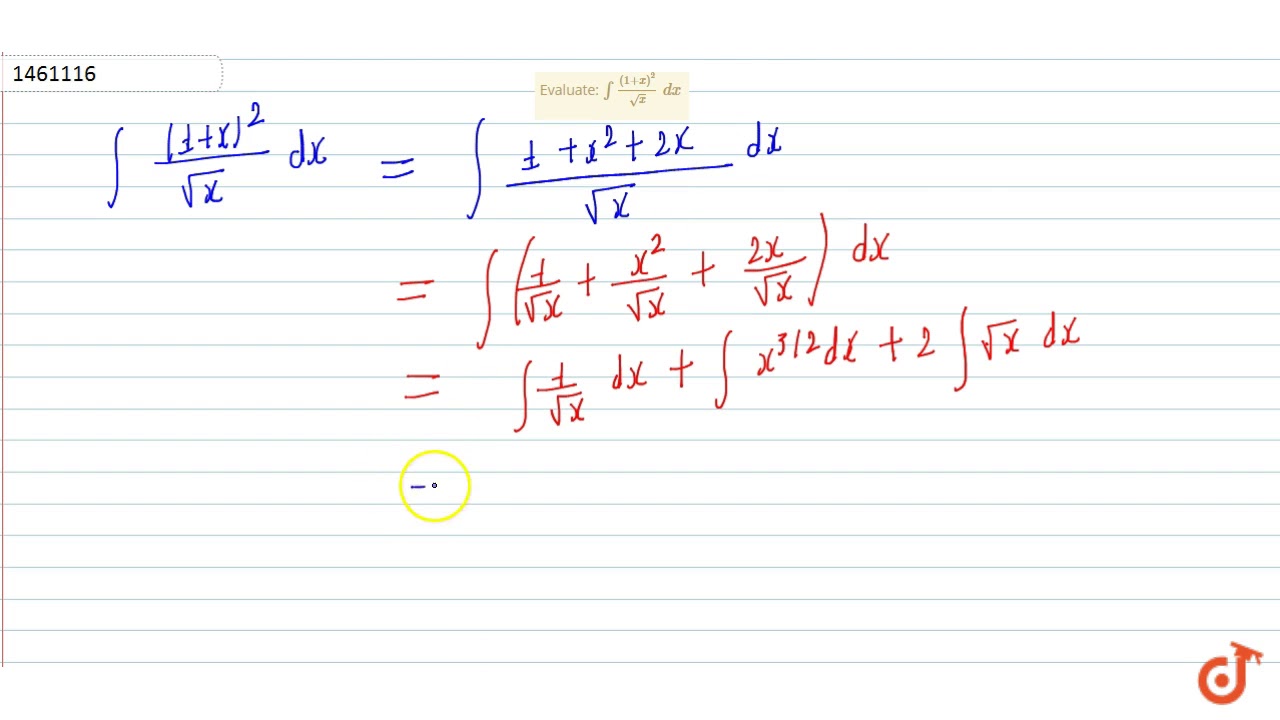 1461116
Evaluate: ∫ (1+x)²/√x dx
∫ (1+x)²/√x dx = ∫ 1+x²+2x/√x dx
= ∫ (1/√x + x²/√x + 2x/√x) dx
= ∫ 1/√x dx + ∫ x^3/2 dx + 2 ∫ √x dx